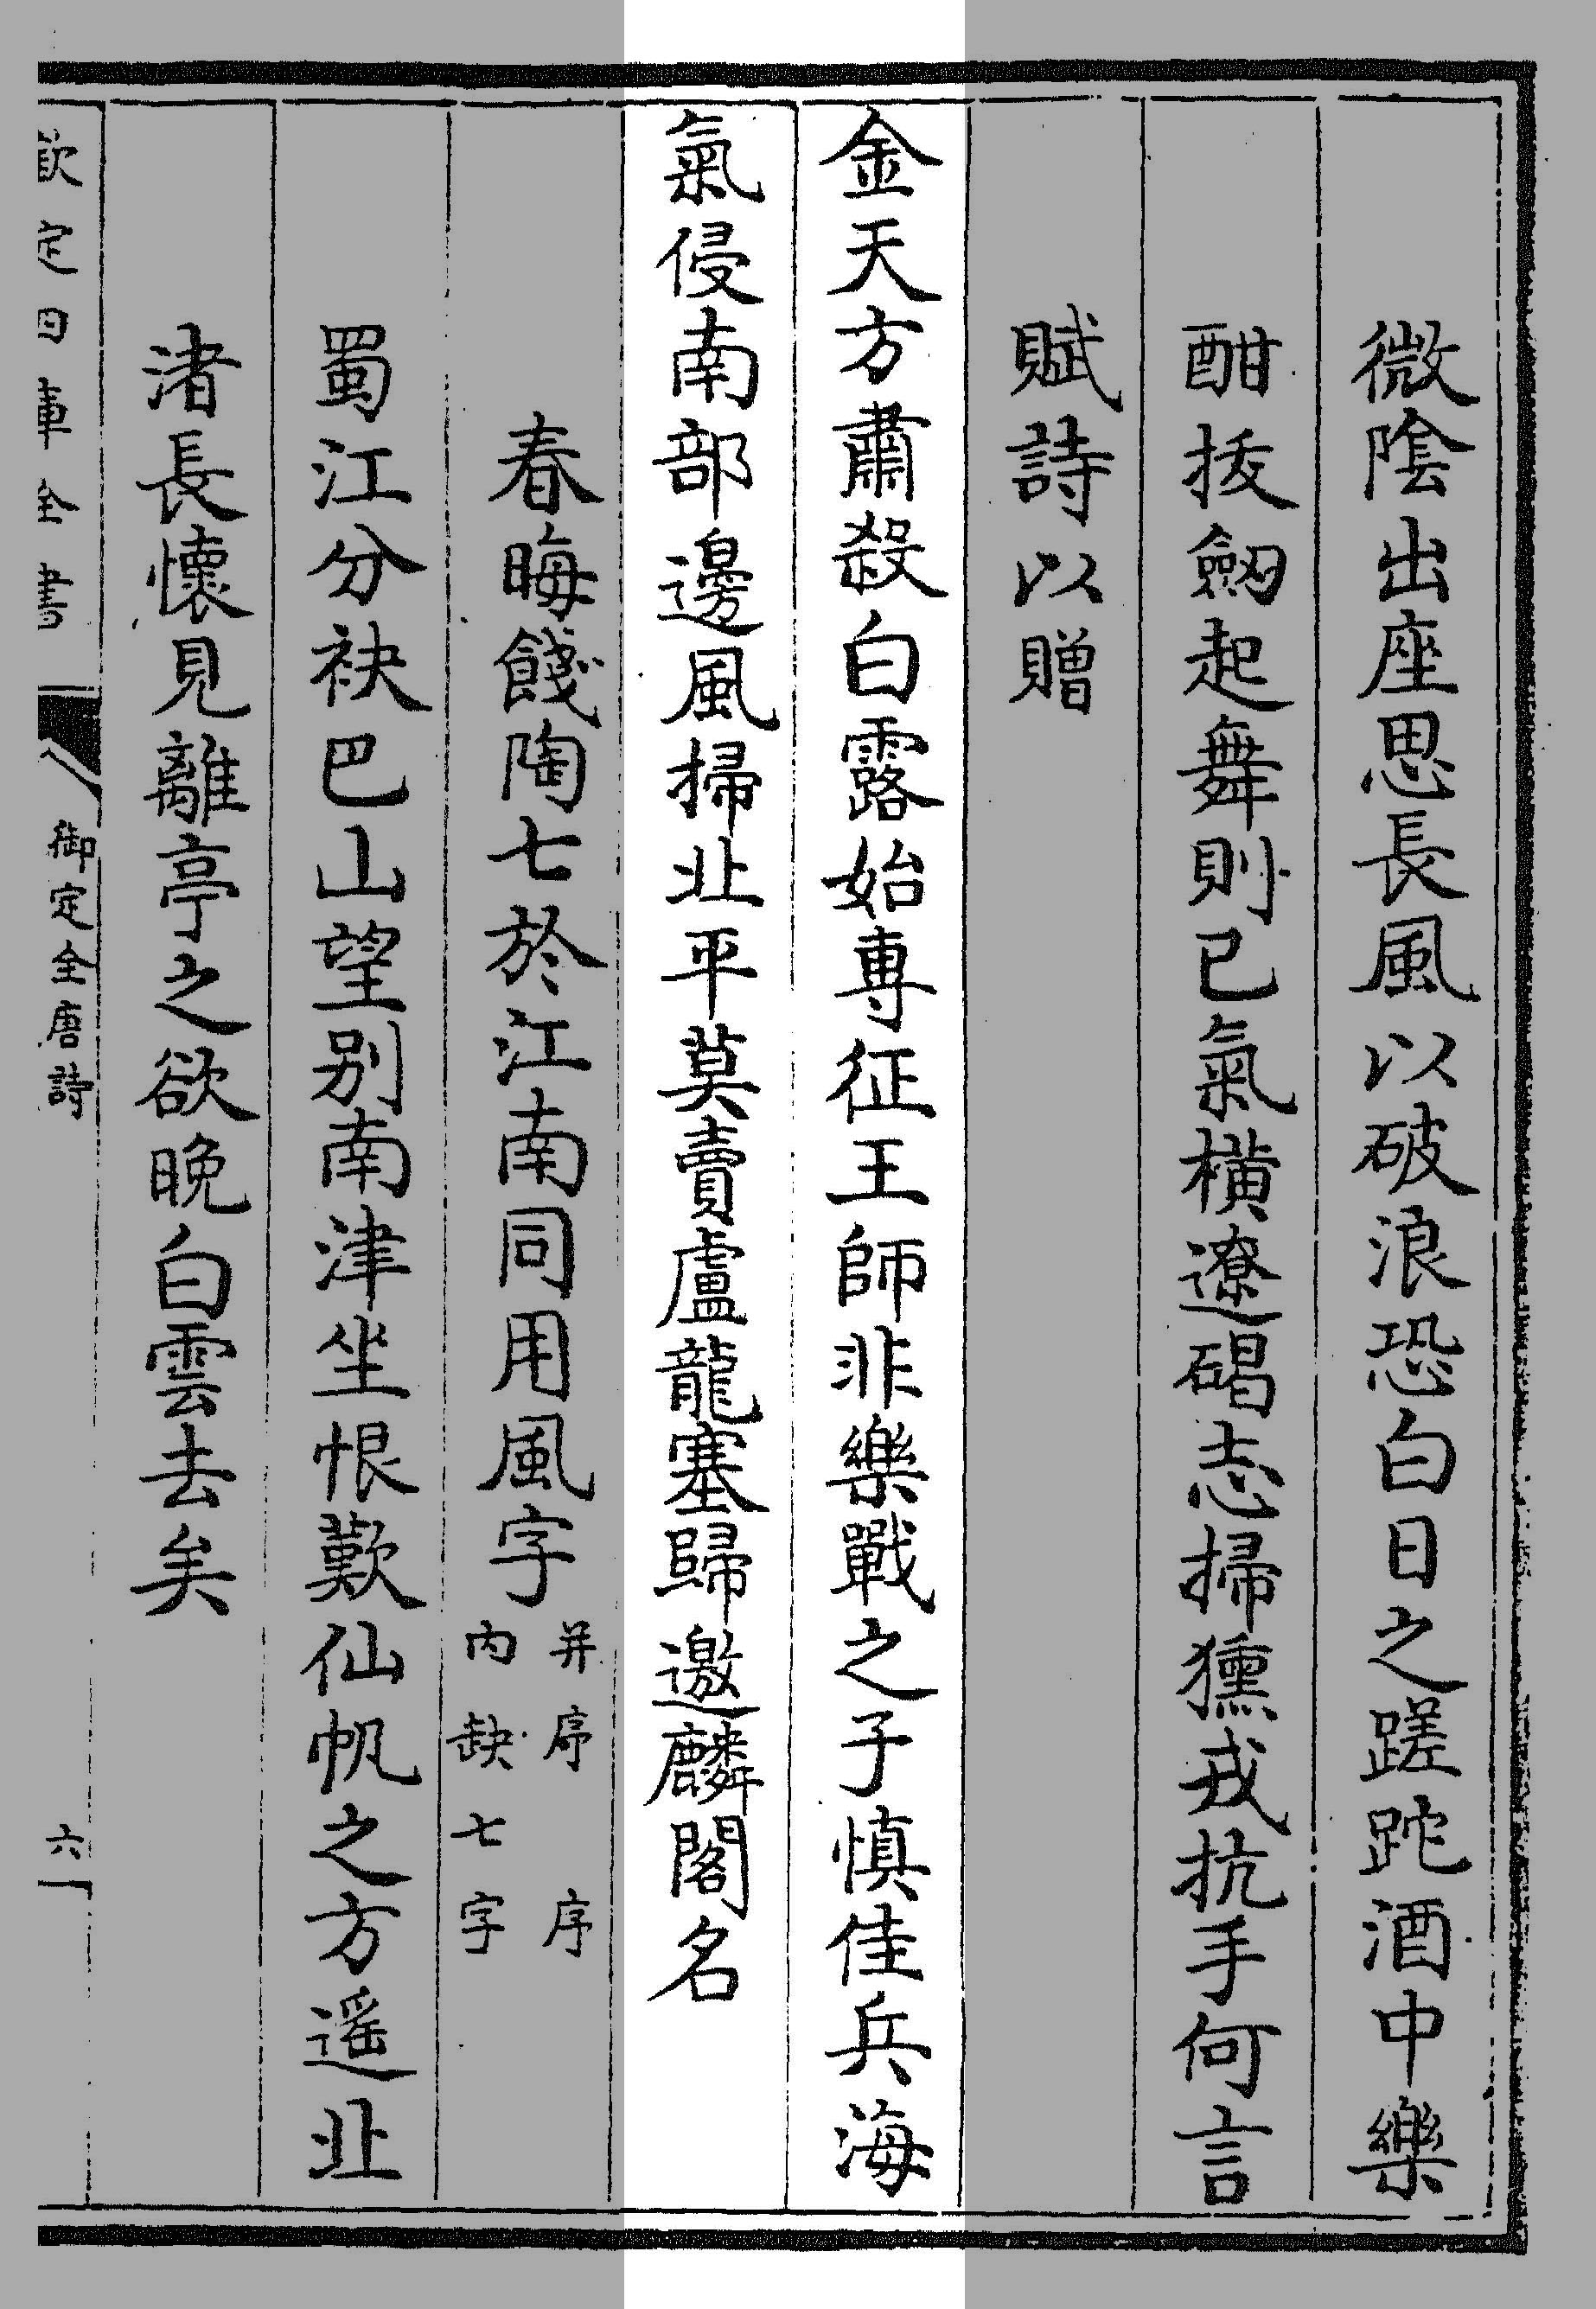 微陰出座思長風以破浪恐白日之蹉跎酒中樂
酣拔劔起舞則已氣橫遼碣志掃獯戎抗手何言
賦詩以贈
金天方肅殺白露始專征王師非樂戰之子慎佳兵海
氣侵南部邊風掃北平莫賣盧龍塞歸邀麟閣名
春晦餞陶七於江南同用風字
并序 序
内缺七字
蜀江分袂巴山望别南津坐恨歎仙帆之方遥北
渚長懷見離亭之欲晚白雲去矣
欽定四庫全書
御定全唐詩
六